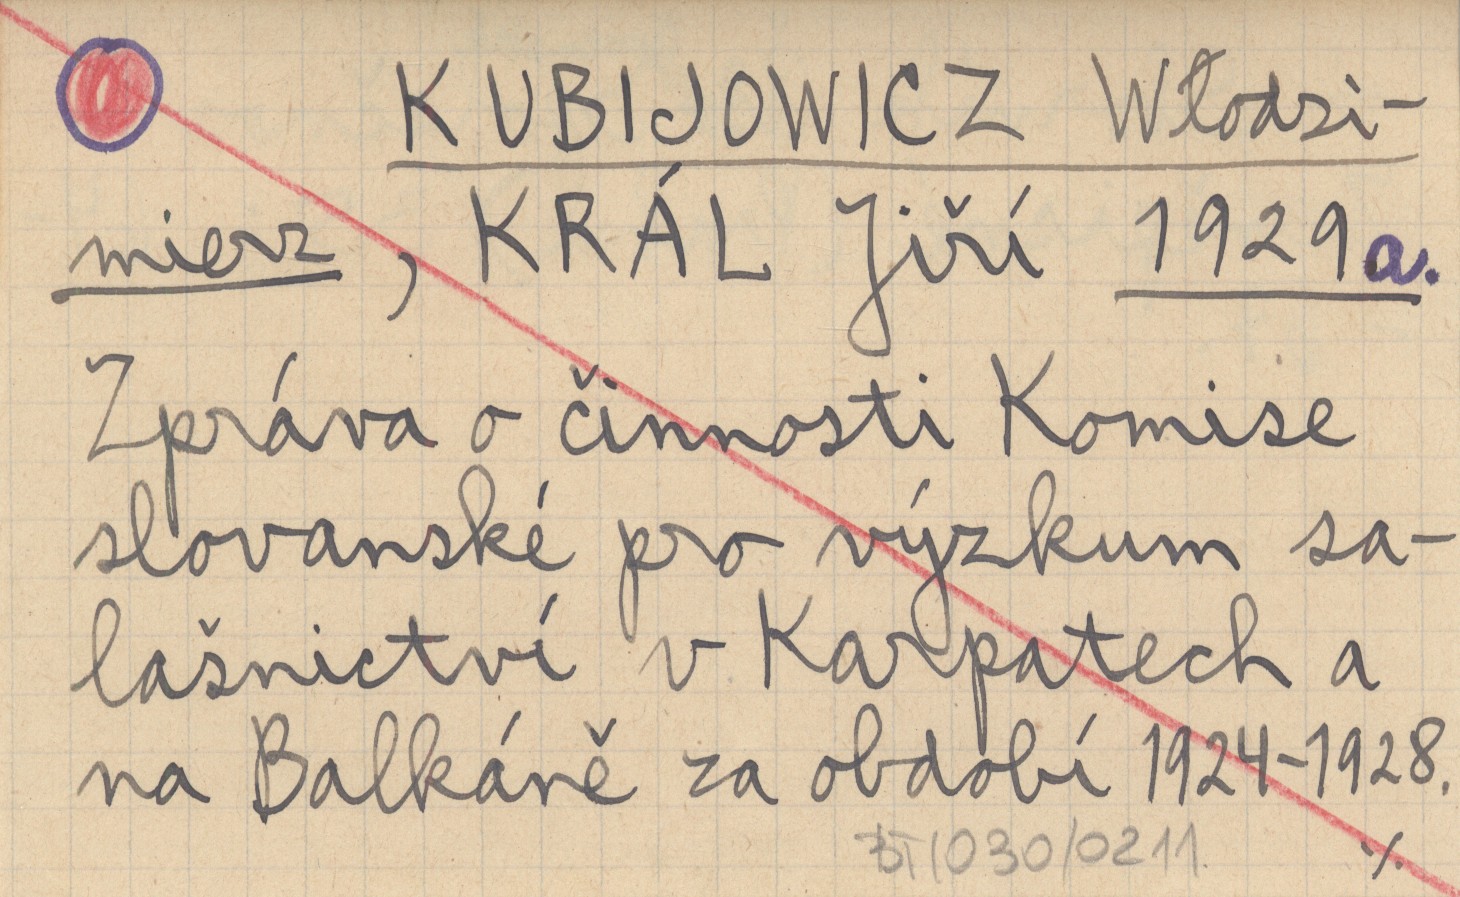 KUBIJOWICZ Włodzi-
mierz, KRÁL Jiří 1929a.
Zpráva o činnosti Komise
slovanské pro výzkum sa-
lašnictví v Karpatech a
na Balkáně za období 1924-1928.
BT/030/0211
./.